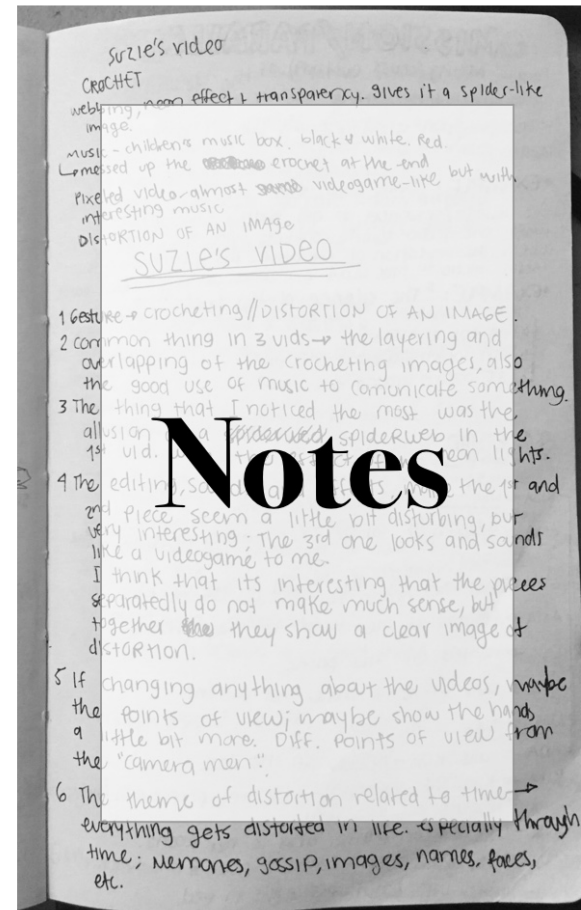 suzie's video
CROCHET
webbing, neon effect & transparency. gives it a spider-like
image.
music - children's music box. black & white. Red.
messed up the crochet at the end
Pixeled video-almost videogame-like but with
interesting music
DISTORTION OF AN IMAGE
SUZIE'S VIDEO
1 Gesture → crocheting//DISTORTION OF AN IMAGE.
2 common thing in 3 vids→ the layering and
overlapping of the crocheting images, also
the good use of music to comunicate something.
3 The thing that I noticed the most was the
allusion a spiderweb in the
1st vid. neon lights.
Notes
4 The editing, and effects, make the 1st and
2nd Piece seem a little bit disturbing, but
very interesting; The 3rd one looks and sounds
like a videogame to me.
I think that its interesting that the pieces
separatedly do not make much sense, but
together they show a clear image of
distortion.
5 If changing anything about the videos, maybe
the points of view; maybe show the hands
a little bit more. Diff. Points of view from
the "camera men".
6 The theme of distortion related to time→
everything gets distorted in life. especially through
time; Memories, gossip, images, names, faces,
etc.